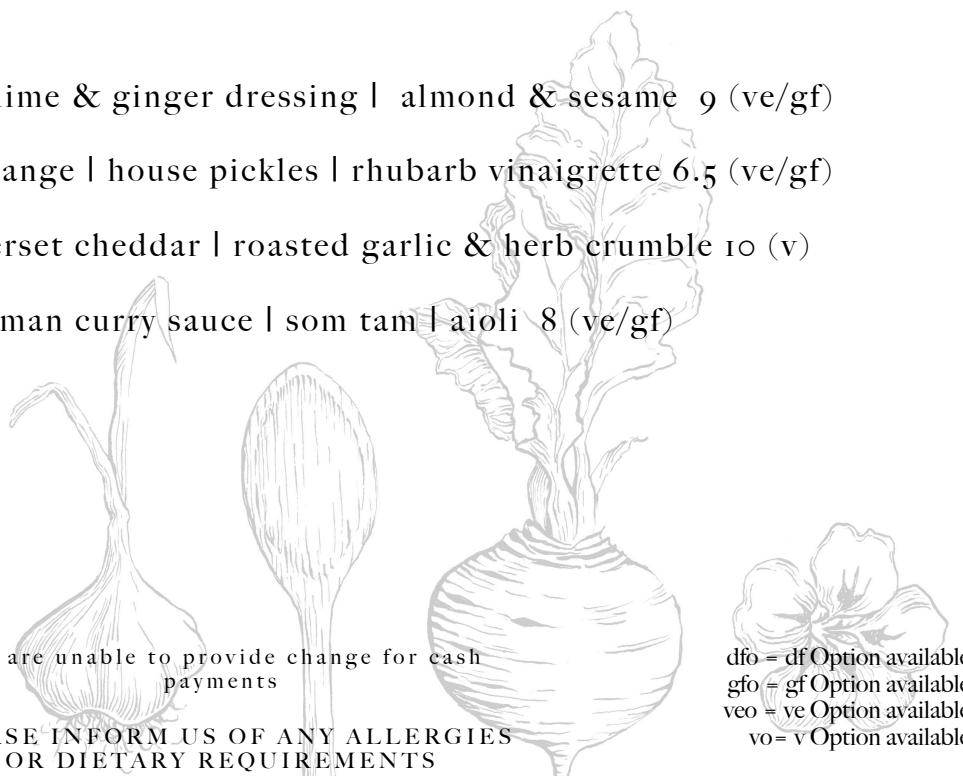 ime & ginger dressing | almond & sesame 9 (ve/gf)
ange | house pickles | rhubarb vinaigrette 6.5 (ve/gf)
erset cheddar | roasted garlic & herb crumble 10 (v)
man curry sauce | som tam | aioli 8 (ve/gf)
are unable to provide change for cash
payments
ASE INFORM US OF ANY ALLERGIES
OR DIETARY REQUIREMENTS
dfo = df Option available
gfo = gf Option available
veo = ve Option available
vo= v Option available